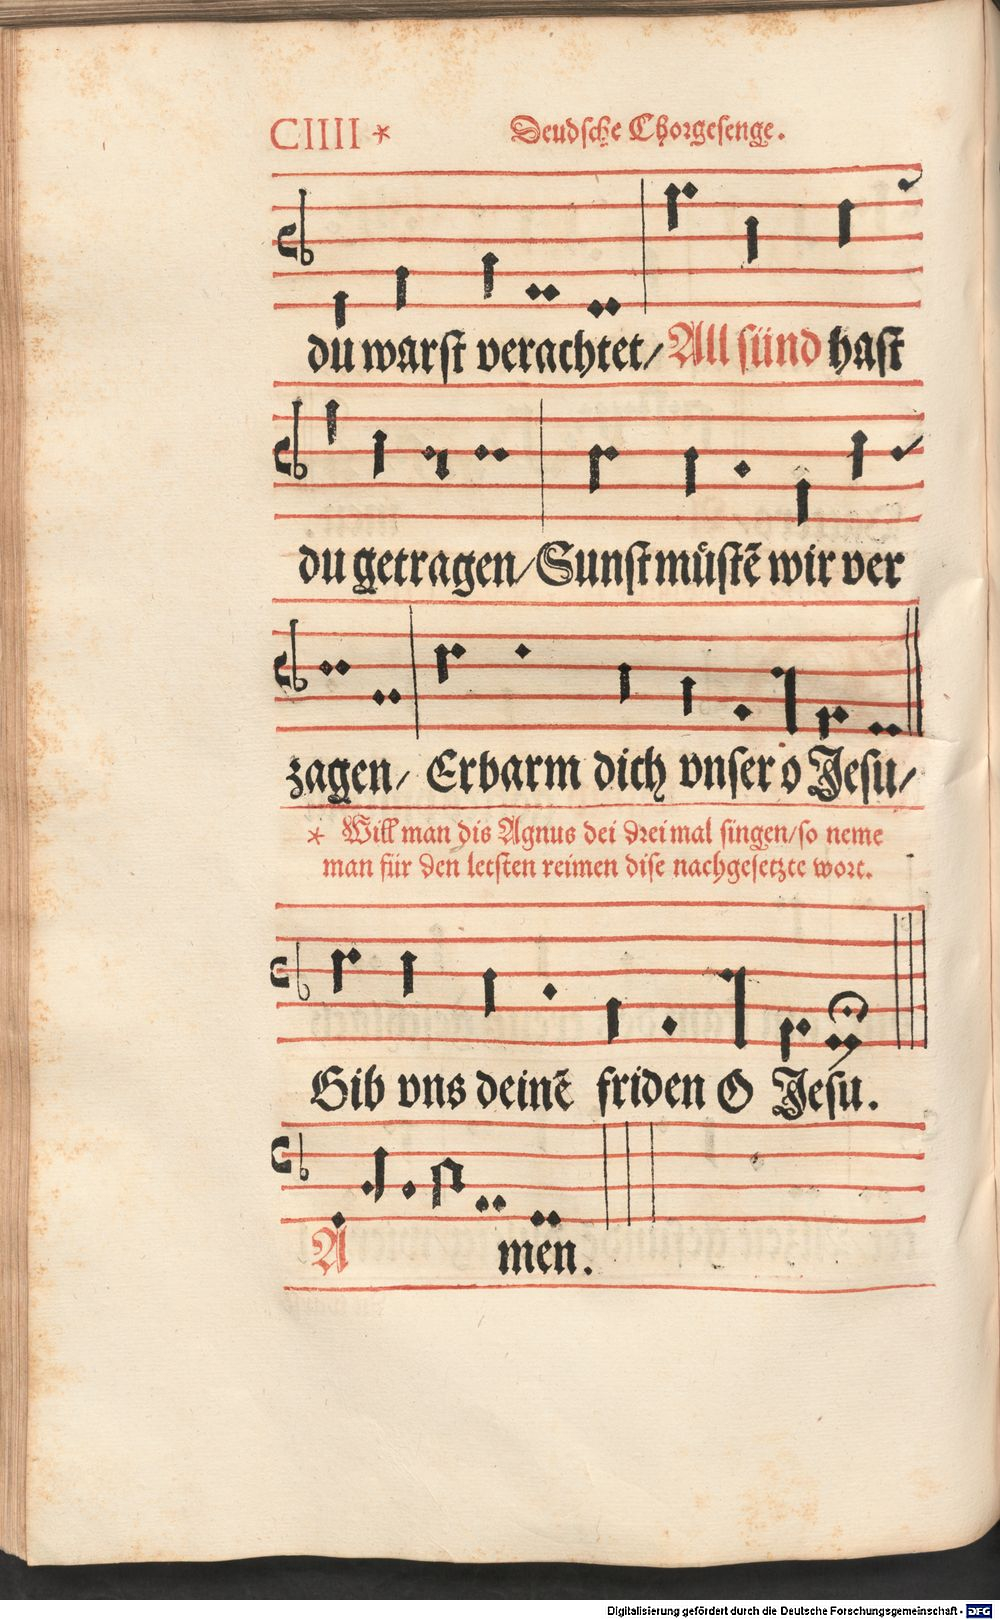 CIIII *
Deudsche Chorgesenge.
du warst verachtet/ All sünd hast
du getragen/ Sunst müstē wir ver
zagen/ Erbarm dich vnser o Jesu/
* Will man dis Agnus dei drei mal singen/ so neme
man für den letsten reimen dise nachgesetzte wort.
Gib vns deinē friden O Jesu.
A men.
Digitalisierung gefördert durch die Deutsche Forschungsgemeinschaft - DFG